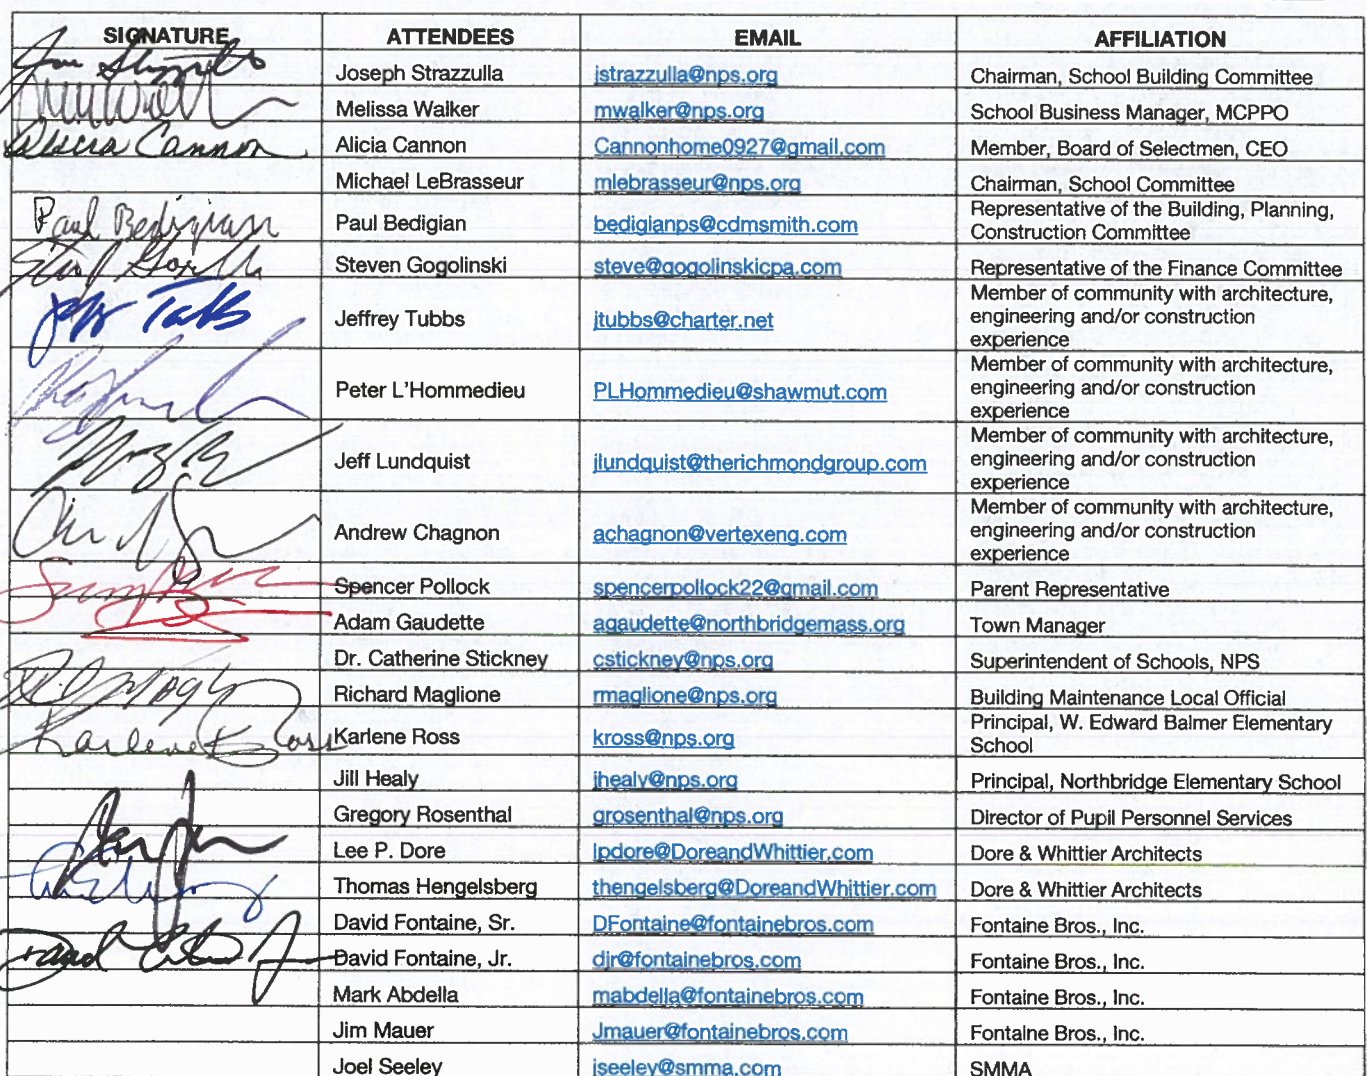 SIGNATURE ATTENDEES EMAIL AFFILIATION
Joseph Strazzulla jstrazzulla@nps.org Chairman, School Building Committee
Melissa Walker mwalker@nps.org School Business Manager, MCPPO
Alicia Cannon Alicia Cannon Cannonhome0927@gmail.com Member, Board of Selectmen, CEO
Michael LeBrasseur mlebrasseur@nps.org Chairman, School Committee
Paul Bedigian Paul Bedigian bedigianps@cdmsmith.com Representative of the Building, Planning,
Construction Committee
Steven Gogolinski steve@gogolinskicpa.com Representative of the Finance Committee
Jeff Tubbs Jeffrey Tubbs jtubbs@charter.net Member of community with architecture,
engineering and/or construction
experience
Peter L'Hommedieu PLHommedieu@shawmut.com Member of community with architecture,
engineering and/or construction
experience
Jeff Lundquist jlundquist@therichmondgroup.com Member of community with architecture,
engineering and/or construction
experience
Andrew Chagnon achagnon@vertexeng.com Member of community with architecture,
engineering and/or construction
experience
Spencer Pollock spencerpollock22@gmail.com Parent Representative
Adam Gaudette agaudette@northbridgemass.org Town Manager
Dr. Catherine Stickney cstickney@nps.org Superintendent of Schools, NPS
Richard Maglione rmaglione@nps.org Building Maintenance Local Official
Karlene Ross Karlene Ross kross@nps.org Principal, W. Edward Balmer Elementary
School
Jill Healy jhealy@nps.org Principal, Northbridge Elementary School
Gregory Rosenthal grosenthal@nps.org Director of Pupil Personnel Services
Lee P. Dore lpdore@DoreandWhittier.com Dore & Whittier Architects
Thomas Hengelsberg thengelsberg@DoreandWhittier.com Dore & Whittier Architects
David Fontaine, Sr. DFontaine@fontainebros.com Fontaine Bros., Inc.
David Fontaine, Jr. djr@fontainebros.com Fontaine Bros., Inc.
Mark Abdella mabdella@fontainebros.com Fontaine Bros., Inc.
Jim Mauer Jmauer@fontainebros.com Fontaine Bros., Inc.
Joel Seeley jseeley@smma.com SMMA